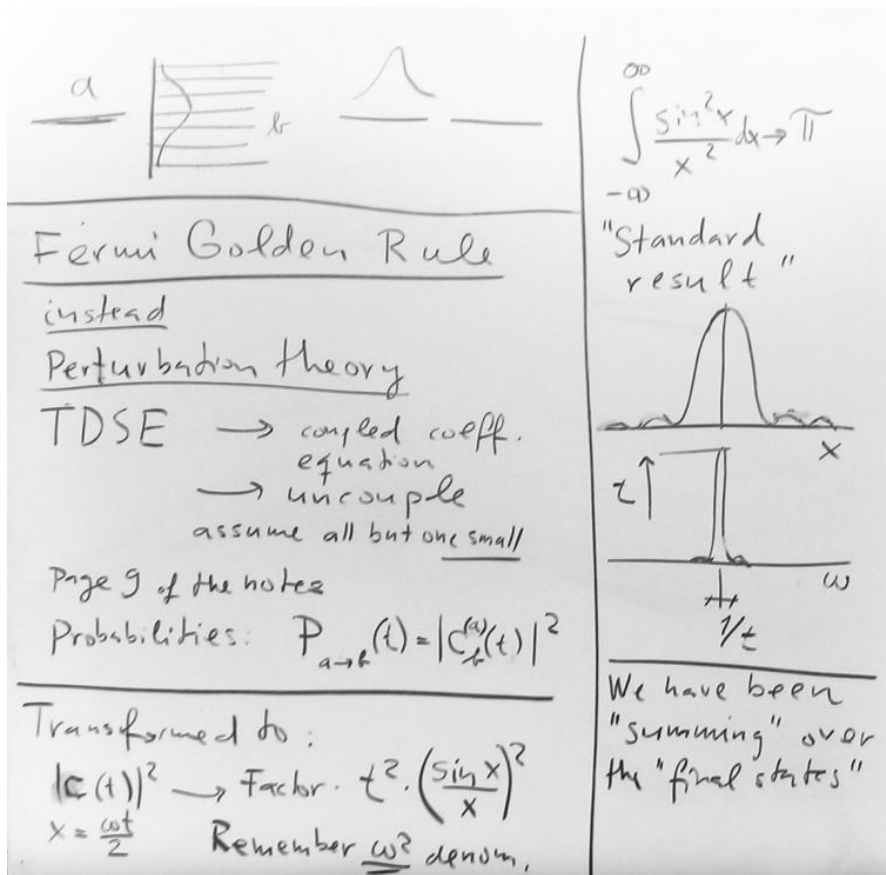 a
b
Fermi Golden Rule
instead
Perturbation theory
TDSE → coupled coeff.
equation
→ uncouple
assume all but one small
Page 9 of the notes
Probabilities: P_{a→b}(t) = |C_b^{(a)}(t)|^2
Transformed to:
|C(t)|^2 → Factor · t^2 · (sin x / x)^2
x = ωt/2 Remember ω^2 denom.
∫_{-∞}^{∞} sin^2 x / x^2 dx → π
"Standard
result"
x
t ↑
ω
1/t
We have been
"summing" over
the "final states"